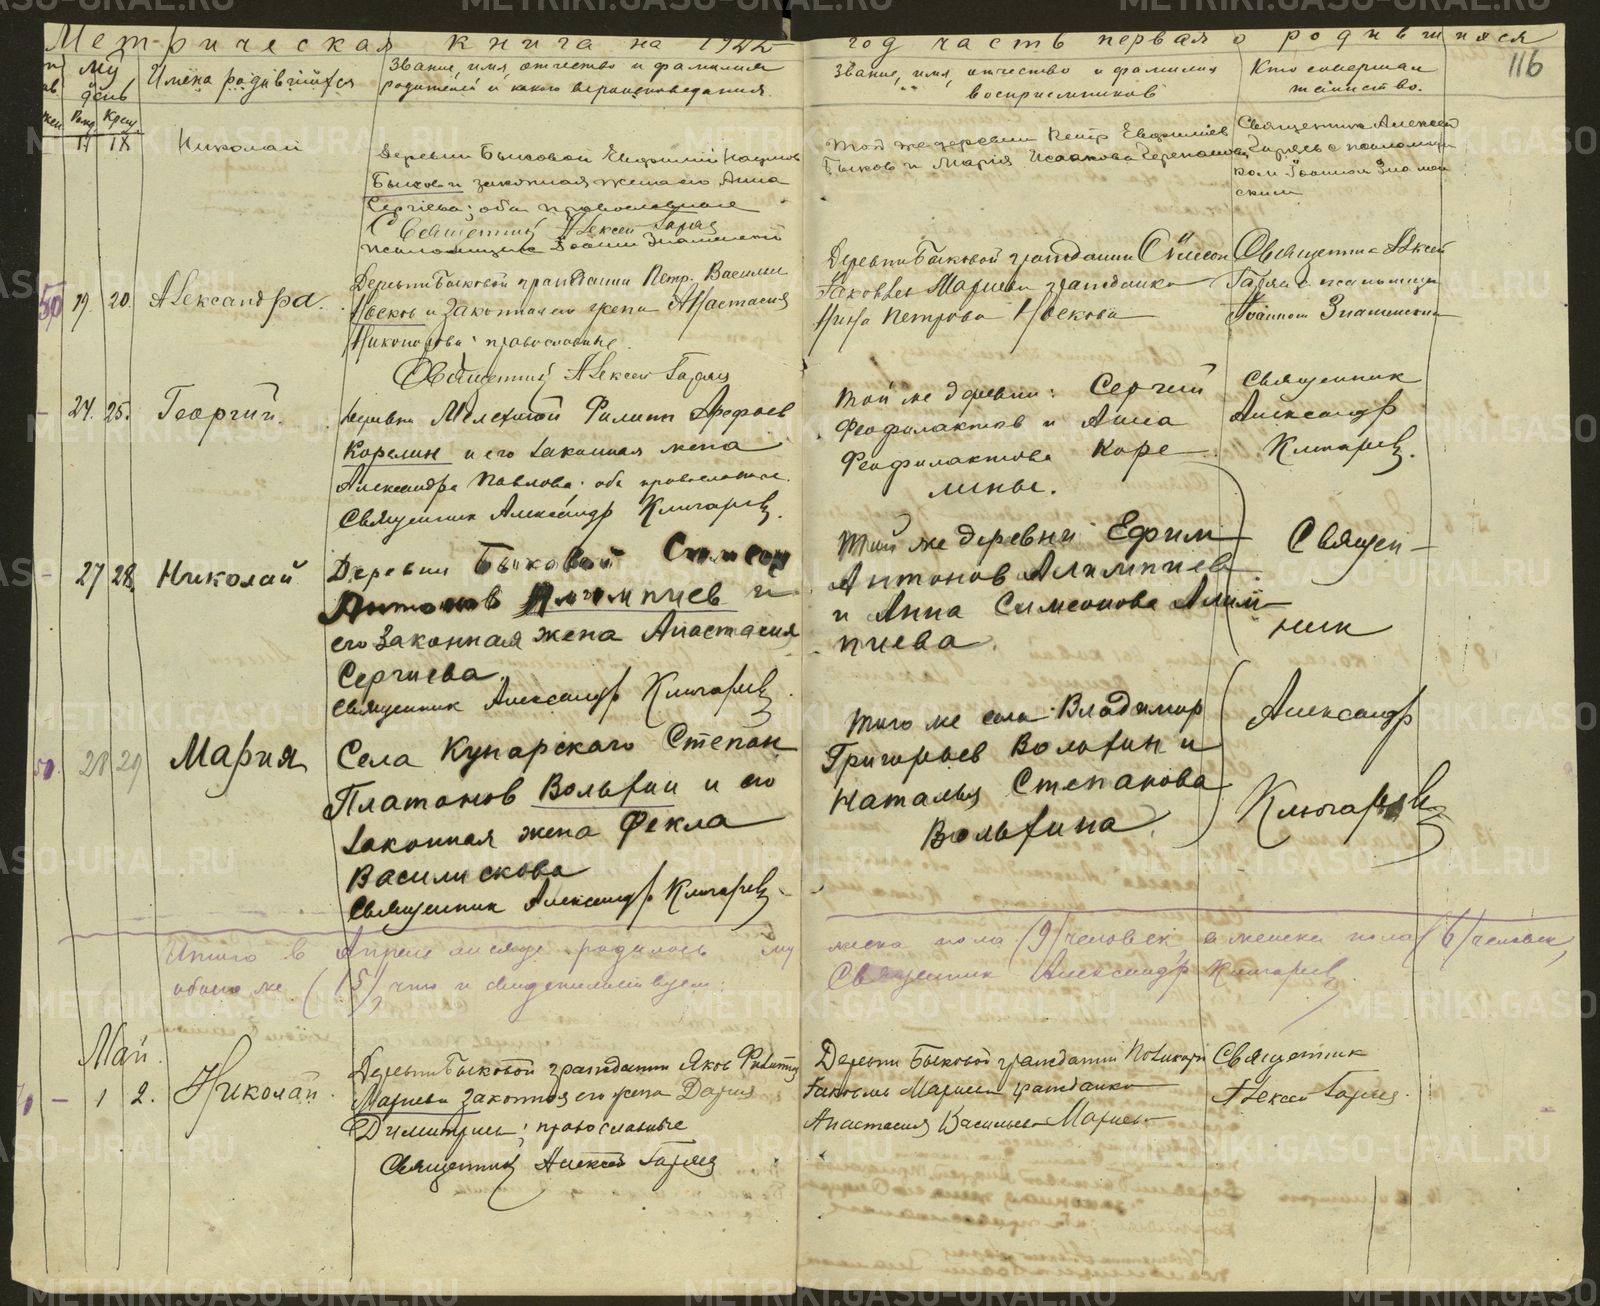 Метрическая книга на 1922 год часть первая о родившихся
116
день
Имена родившихся
Звание, имя, отчество и фамилия
родителей и какого вероисповедания.
Звание, имя, отчество и фамилия
восприемников
Кто совершал
таинство.
Николай
Деревни Быковой Евфимий Наумов
Быков и законная жена его Анна
Сергиева; оба православные
Священник Алексей
Псаломщик Иоанн Знаменский
Той же деревни Петр Евфимиев
Быков и Мария Исаакова
Священник Алексей
с псаломщи
ком Иоанном Знамен
ским
19 20. Александра.
Деревни Быковой гражданин Петр Васильев
Носков и законная его жена Анастасия
Никонорова; православные.
Священник Алексей
Деревни Быковой гражданин Симеон
Яковлев Мариев гражданка
Нина Петрова Носкова
Священник Алексей
с псаломщик
Иоанном Знаменским
24. 25. Георгий.
деревни Филипп Арефьев
Корелин и его законная жена
Александра Павлова: оба православные.
Священник Александр Ключарев.
Той же деревни: Сергий
Феофилактов и Анна
Феофилактова Коре
лины.
Священник
Александр
Ключарев.
27 28. Николай
Деревни Быковой Симеон
Антонов Алимпиев и
его законная жена Анастасия
Сергиева.
Священник Александр Ключарев.
Той же деревни Ефим
Антонов Алимпиев
и Анна Симеонова Алим
пиева.
Священ-
ник
28 29 Мария
Села Кунарского Степан
Платонов Вольхин и его
законная жена Фекла
Василискова
Священник Александр Ключарев
Того же села Владимир
Григорьев Вольхин и
Наталья Степанова
Вольхина.
Александр
Ключарев
Итого в Апреле месяце родилось му
жеска пола (9) человек, а женска пола (6) человек,
обоего же (15) что и свидетельствуем:
Священник Александр Ключарев.
Май.
1 2. Николай
Деревни Быковой гражданин Яков
Мариев законная его жена Дария
Димитриева; православные
Священник Алексей
Деревни Быковой гражданин Поликарп
Яковлев Мариев гражданка
Анастасия Васильева Мариева
Священник
Алексей
METRIKI.GASO-URAL.RU